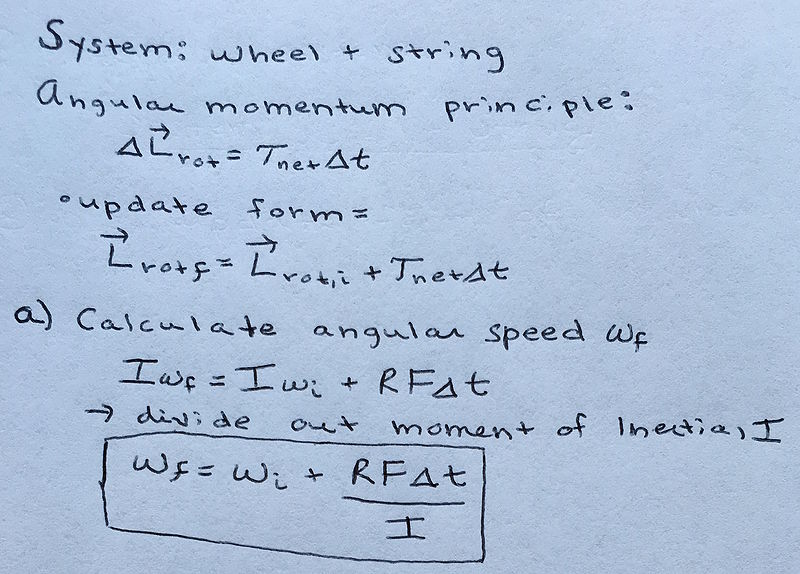 System: wheel + string
Angular momentum principle:
ΔL⃗rot = Tnet Δt
•update form=
L⃗rotf = L⃗rot,i + TnetΔt
a) Calculate angular speed ωf
Iωf = Iωi + RFΔt
→ divide out moment of Inertia, I
ωf = ωi + RFΔt
I